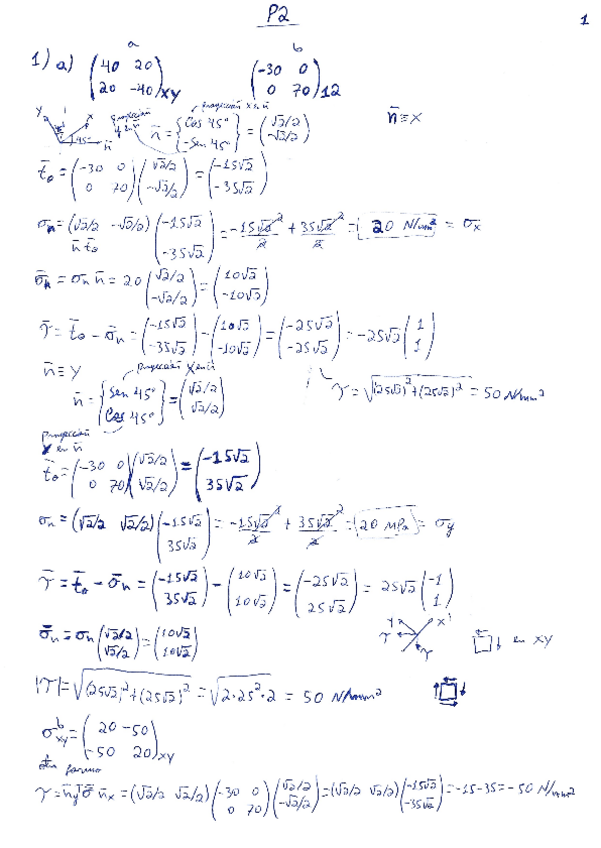 P2
1
a b
1) a) (40 20 ; 20 -40)XY (-30 0 ; 0 70)12
n̄ = {Cos 45° ; -Sen 45°} = (√2/2 ; -√2/2) n̄ ≡ X
t̄o = (-30 0 ; 0 70)(√2/2 ; -√2/2) = (-15√2 ; -35√2)
σn = (√2/2 -√2/2)(-15√2 ; -35√2) = -15√2²/2 + 35√2²/2 = 20 N/mm² = σx
n̄ t̄o
σ̄n = σn n̄ = 20 (√2/2 ; -√2/2) = (10√2 ; -10√2)
τ̄ = t̄o - σ̄n = (-15√2 ; -35√2) - (10√2 ; -10√2) = (-25√2 ; -25√2) = -25√2 (1 ; 1)
n̄ ≡ Y proyección X en n̄
n̄ = {Sen 45° ; Cos 45°} = (√2/2 ; √2/2) τ = √((25√2)² + (25√2)²) = 50 N/mm²
proyección
en n̄
t̄o = (-30 0 ; 0 70)(√2/2 ; √2/2) = (-15√2 ; 35√2)
σn = (√2/2 √2/2)(-15√2 ; 35√2) = -15√2²/2 + 35√2²/2 = 20 MPa = σy
τ̄ = t̄o - σ̄n = (-15√2 ; 35√2) - (10√2 ; 10√2) = (-25√2 ; 25√2) = 25√2 (-1 ; 1)
σ̄n = σn (√2/2 ; √2/2) = (10√2 ; 10√2) Y X τ τ en XY
|τ| = √((25√2)² + (25√2)²) = √(2·25²·2) = 50 N/mm²
σᵇxy = (20 -50 ; -50 20)XY
τ = n̄yᵀ σ̄ n̄x = (√2/2 √2/2)(-30 0 ; 0 70)(√2/2 ; -√2/2) = (√2/2 √2/2)(-15√2 ; -35√2) = -15-35 = -50 N/mm²